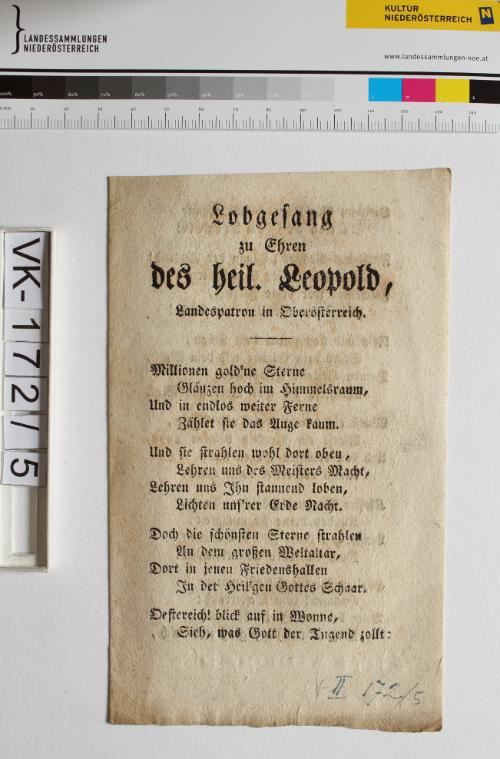 LANDESSAMMLUNGEN
NIEDERÖSTERREICH
KULTUR
NIEDERÖSTERREICH
N
www.landessammlungen-noe.at
VK-172/5
Lobgesang
zu Ehren
des heil. Leopold,
Landespatron in Oberösterreich.
Millionen gold'ne Sterne
Glänzen hoch im Himmelsraum,
Und in endlos weiter Ferne
Zählet sie das Auge kaum.
Und sie strahlen wohl dort oben,
Lehren uns des Meisters Macht,
Lehren uns Ihn staunend loben,
Lichten uns'rer Erde Nacht.
Doch die schönsten Sterne strahlen
An dem großen Weltaltar,
Dort in jenen Friedenshallen
In der Heil'gen Gottes Schaar.
Oestereich! blick auf in Wonne,
Sieh, was Gott der Tugend zollt:
V-II 172/5